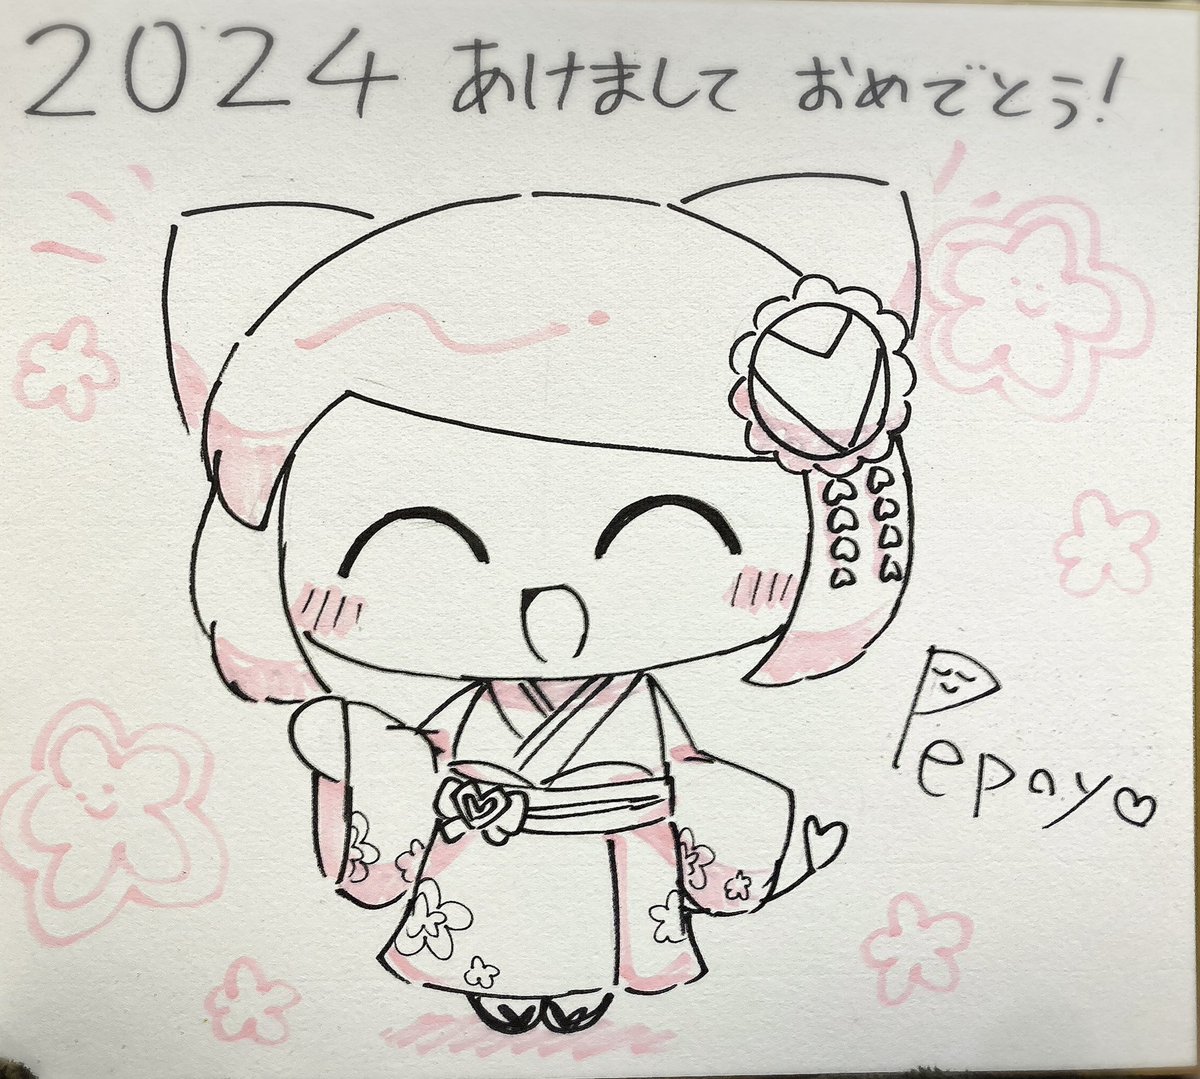 2024 あけまして おめでとう!
Pepoyo♡